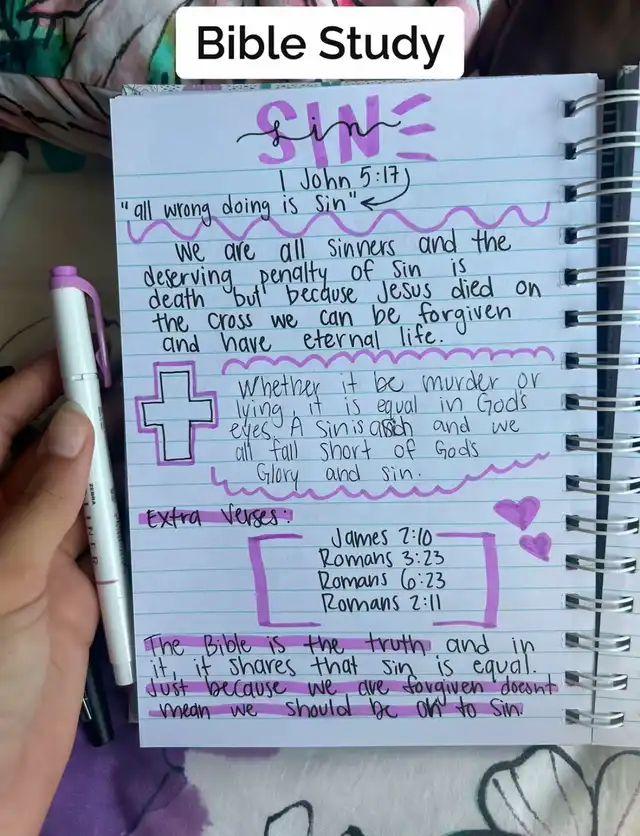 Bible Study
SIN
sin
1 John 5:17
"all wrong doing is Sin"
We are all sinners and the
deserving penalty of Sin is
death but because Jesus died on
the cross we can be forgiven
and have eternal life.
Whether it be murder or
lying, it is equal in God's
eyes. A sin is a sin and we
all fall short of God's
Glory and sin.
Extra Verses:
James 2:10
Romans 3:23
Romans 6:23
Romans 2:11
The Bible is the truth and in
it, it shares that sin is equal.
Just because we are forgiven doesnt
mean we should be ok to Sin.